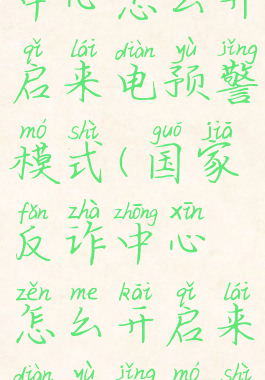 中心怎么开
qǐ lái diàn yù jǐng
启来电预警
mó shì guó jiā
模式(国家
fǎn zhà zhōng xīn
反诈中心
zěn me kāi qǐ lái
怎么开启来
diàn yù jǐng mó shì